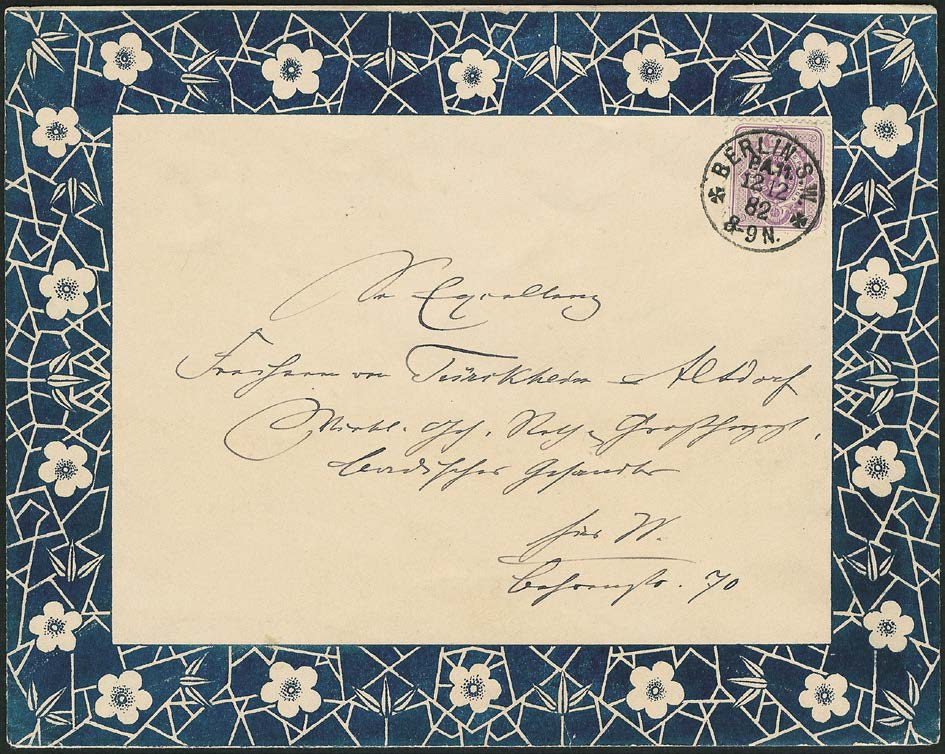 BERLIN S.W.
P.A. 11.
12 12
82
8-9 N.
Sr Excellenz
Freiherrn von Türckheim-Altdorf
Wirkl. Geh. Rath u. Großherzogl.
badischer Gesandter
hier W.
Behrenstr. 70